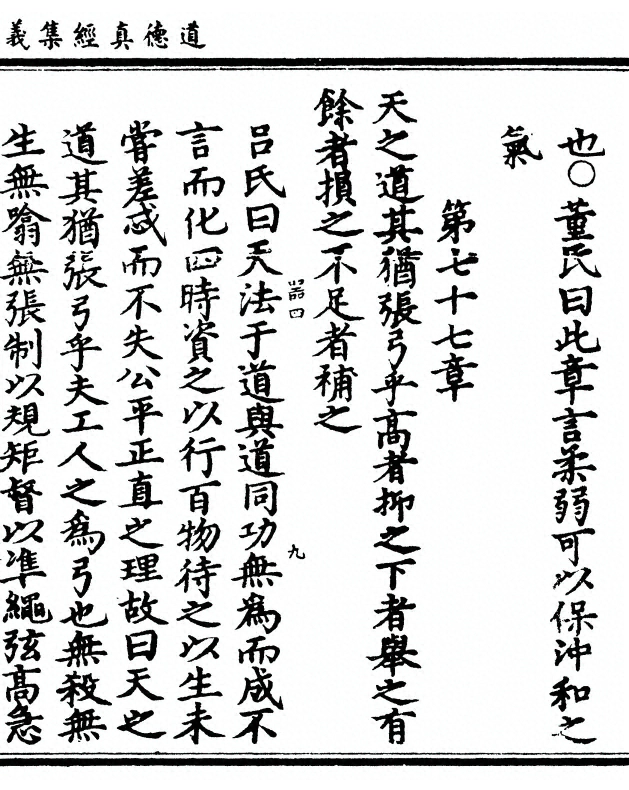 道德真經集義
也○董氏曰此章言柔弱可以保沖和之
氣
第七十七章
天之道其猶張弓乎高者抑之下者舉之有
餘者損之不足者補之
器四
九
呂氏曰天法于道與道同功無爲而成不
言而化四時資之以行百物待之以生未
嘗差忒而不失公平正直之理故曰天之
道其猶張弓乎夫工人之爲弓也無殺無
生無翕無張制以規矩督以準繩弦高急